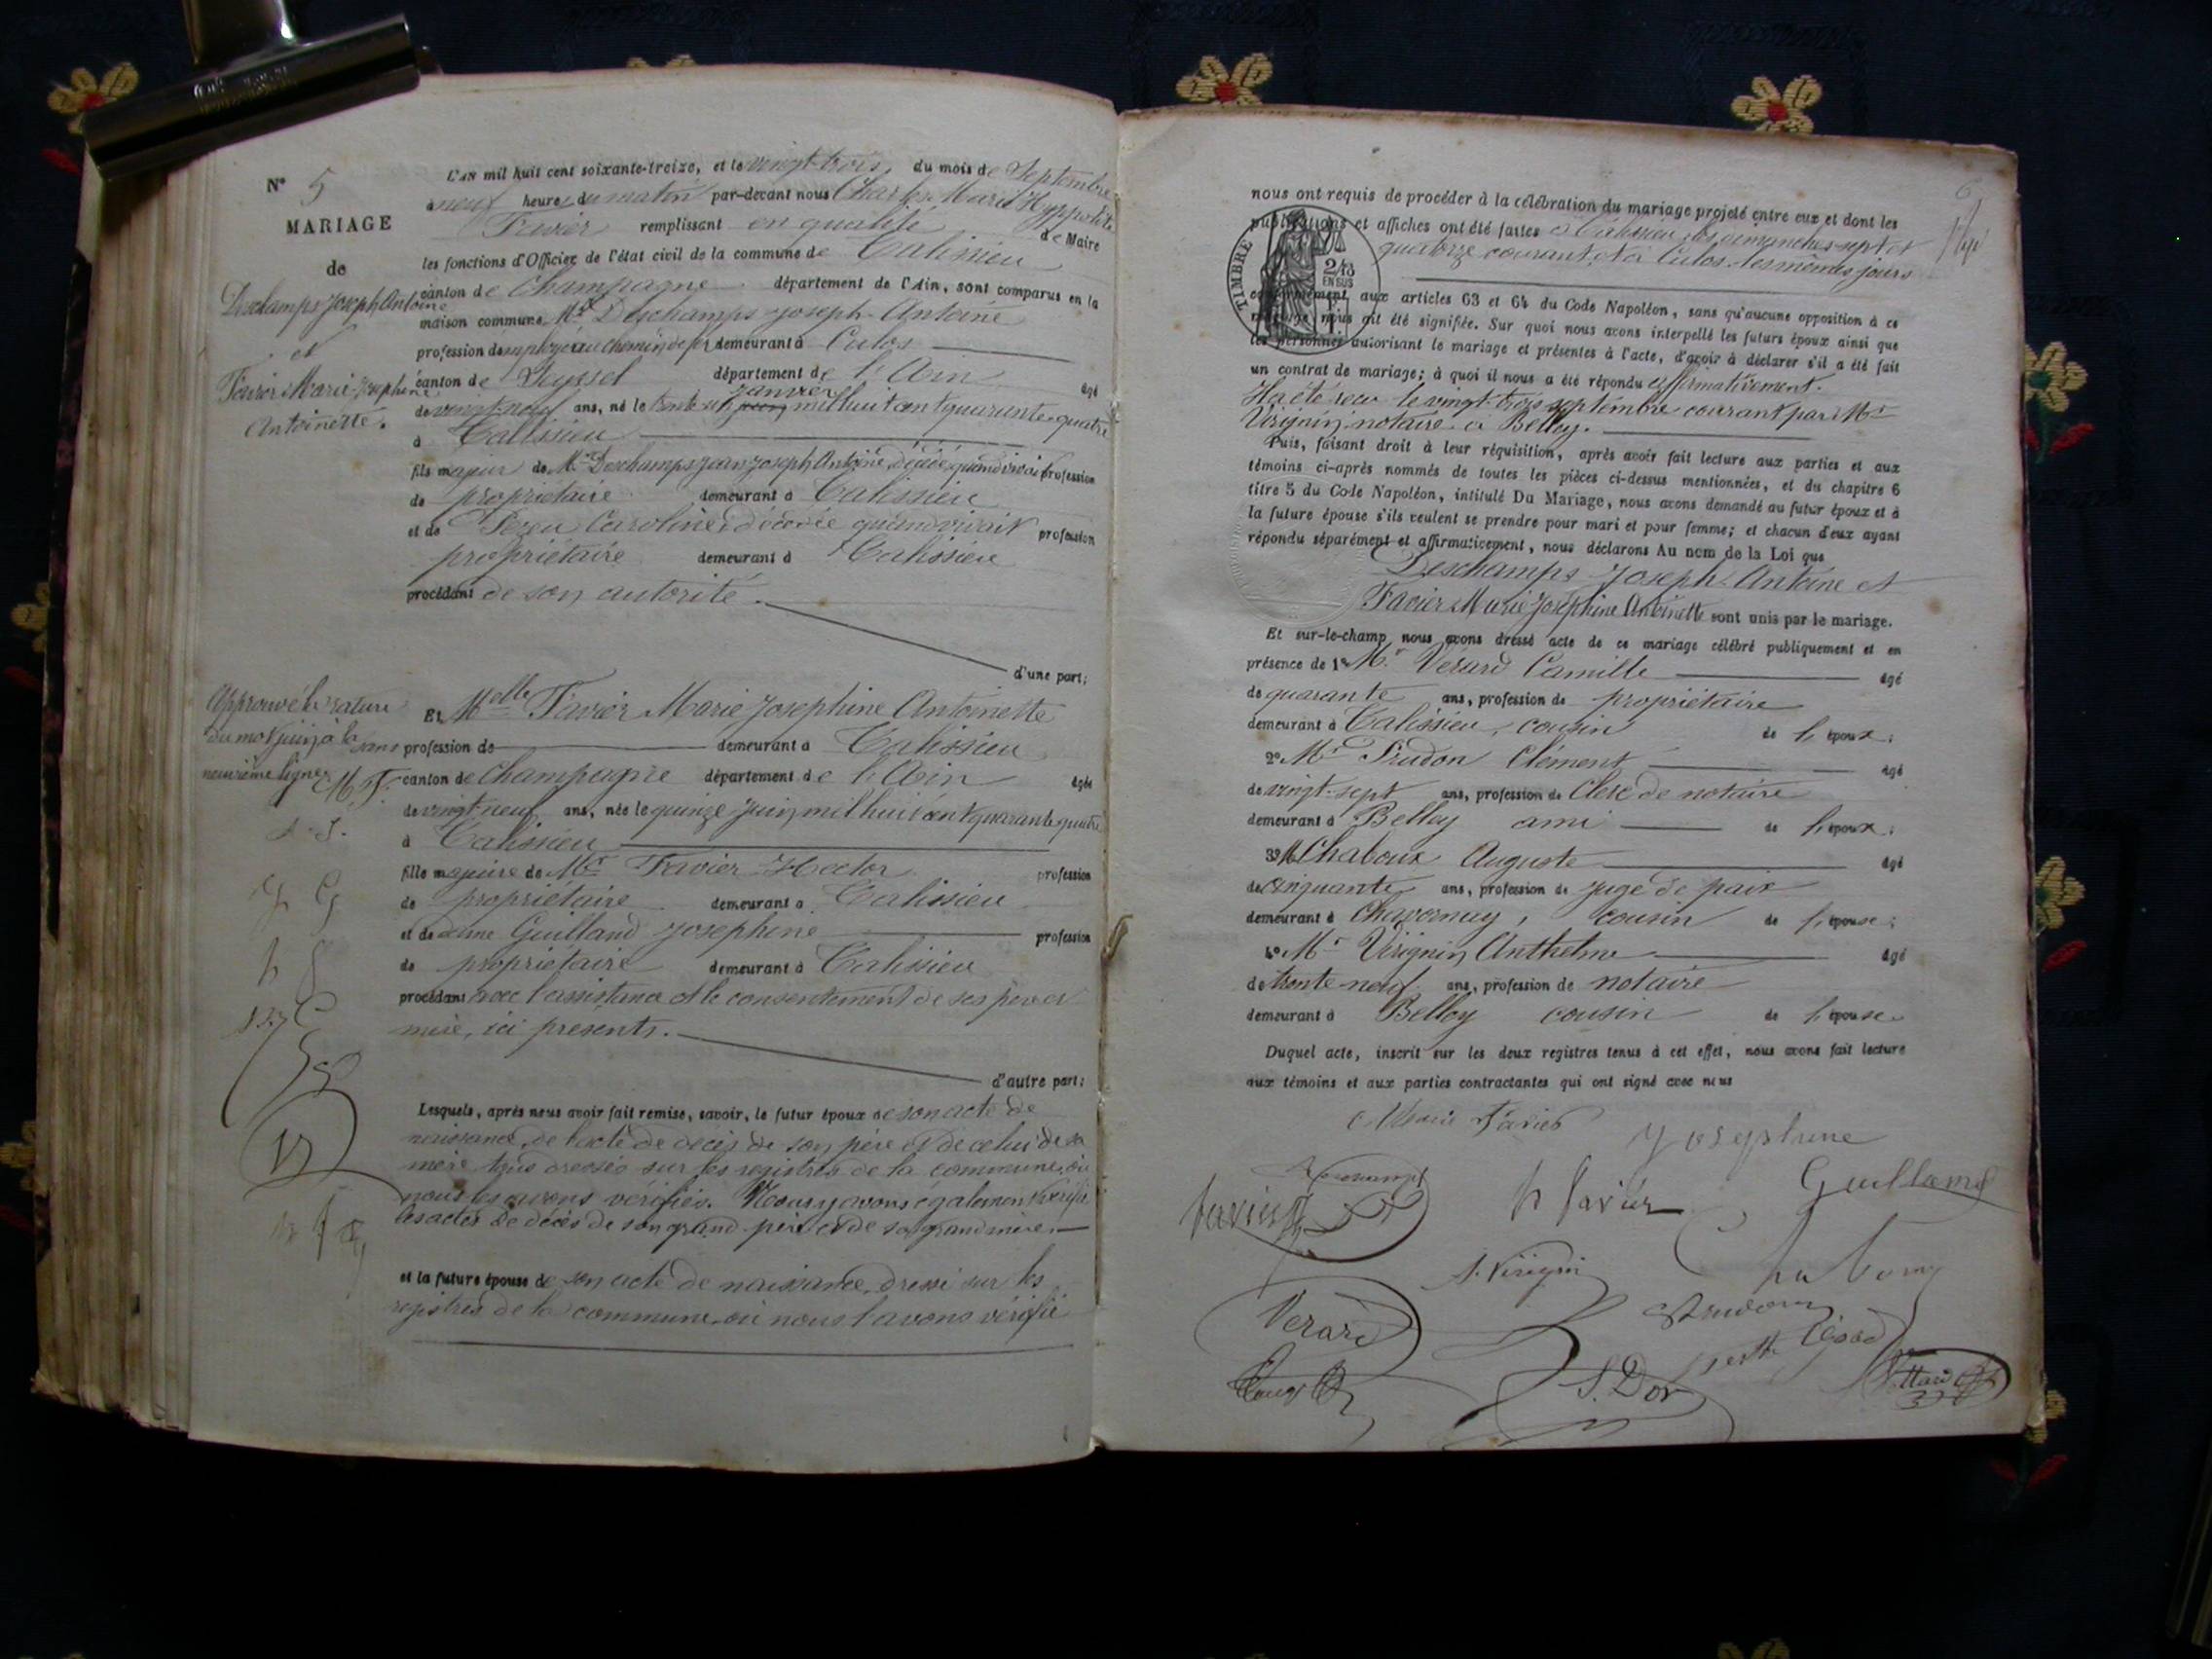 N° 5
MARIAGE
de
Deschamps Joseph Antoine
et
Favier Marie Josephine
Antoinette.
L'an mil huit cent soixante-treize, et le vingt-trois, du mois de Septembre
à neuf heures du matin par-devant nous Charles Marie Hyppolite
Favier remplissant en qualité de Maire
les fonctions d'Officier de l'état civil de la commune de Talissieu
canton de Champagne département de l'Ain, sont comparus en la
maison commune Mr Deschamps Joseph Antoine
profession d'employé au chemin de fer demeurant à Culoz
canton de Seyssel département de l'Ain âgé
de vingt-neuf ans, né le trente un juin janvier mil huit cent quarante-quatre
à Talissieu
fils majeur de Mr Deschamps Jean Joseph Antoine, décédé, quand vivait profession
de propriétaire demeurant à Talissieu
et de Caroline, décédée quand vivait profession
propriétaire demeurant à Talissieu
procédant de son autorité.
d'une part;
Approuvé la rature
du mot juin à la
neuvième ligne. M. F.
Et Melle Favier Marie Josephine Antoinette
sans profession de demeurant à Talissieu
canton de Champagne département de l'Ain âgée
de vingt-neuf ans, née le quinze juin mil huit cent quarante quatre
à Talissieu
fille majeure de Mr Favier Hector profession
de propriétaire demeurant à Talissieu
et de dame Guilland Josephine profession
de propriétaire demeurant à Talissieu
procédant avec l'assistance et le consentement de ses père et
mère, ici présents.
d'autre part;
Lesquels, après nous avoir fait remise, savoir, le futur époux de son acte de
naissance, de l'acte de décès de son père et de celui de sa
mère, tous dressés sur les registres de la commune, où
nous les avons vérifiés. Nous y avons également vérifié
les actes de décès de son grand-père et de sa grand mère.
et la future épouse de son acte de naissance, dressé sur les
registres de la commune, où nous l'avons vérifié
nous ont requis de procéder à la célébration du mariage projeté entre eux et dont les
publications et affiches ont été faites à Talissieu, les dimanches sept et
quatorze courant, et à Culoz, les mêmes jours
TIMBRE
EN SUS
conformément aux articles 63 et 64 du Code Napoléon, sans qu'aucune opposition à ce
mariage nous ait été signifiée. Sur quoi nous avons interpellé les futurs époux ainsi que
les personnes autorisant le mariage et présentes à l'acte, d'avoir à déclarer s'il a été fait
un contrat de mariage; à quoi il nous a été répondu affirmativement.
Il a été reçu le vingt-trois septembre courant par Mr
Virignin, notaire à Belley.
Puis, faisant droit à leur réquisition, après avoir fait lecture aux parties et aux
témoins ci-après nommés de toutes les pièces ci-dessus mentionnées, et du chapitre 6
titre 5 du Code Napoléon, intitulé Du Mariage, nous avons demandé au futur époux et à
la future épouse s'ils veulent se prendre pour mari et pour femme; et chacun d'eux ayant
répondu séparément et affirmativement, nous déclarons Au nom de la Loi que
Deschamps Joseph Antoine et
Favier Marie Joséphine Antoinette sont unis par le mariage.
Et sur-le-champ nous avons dressé acte de ce mariage célébré publiquement et en
présence de 1° Mr Vérard Camille âgé
de quarante ans, profession de propriétaire
demeurant à Talissieu, cousin de l'époux;
2° Mr Prudon Clément âgé
de vingt-sept ans, profession de Clerc de notaire
demeurant à Belley ami de l'époux;
3° Mr Chaboux Auguste âgé
de cinquante ans, profession de juge de paix
demeurant à Chavornay, cousin de l'épouse;
4° Mr Virignin Anthelme âgé
de trente-neuf ans, profession de notaire
demeurant à Belley cousin de l'épouse.
Duquel acte, inscrit sur les deux registres tenus à cet effet, nous avons fait lecture
aux témoins et aux parties contractantes qui ont signé avec nous
Marie Favier
Josephine
Guilland
h Favier
A. Virignin
Verard
Prudon
S. Dor